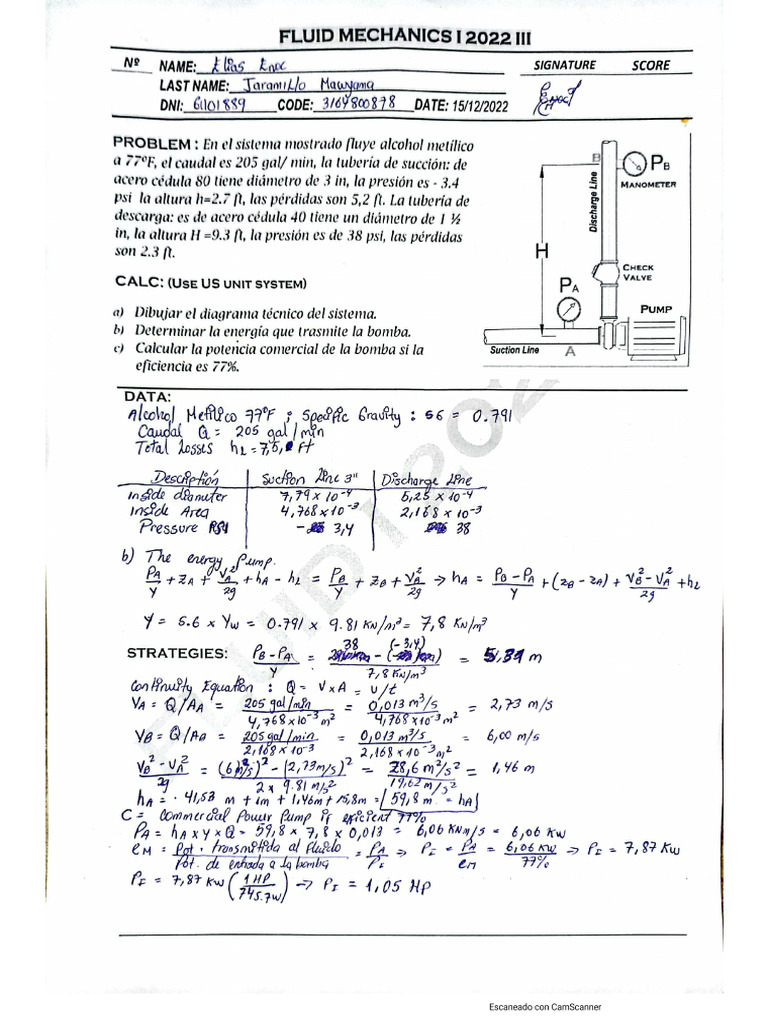 FLUID MECHANICS I 2022 III
Nº NAME: Elias Enoc SIGNATURE SCORE
LAST NAME: Jaramillo Mawyama
DNI: 61101889 CODE: 3164800878 DATE: 15/12/2022
PROBLEM : En el sistema mostrado fluye alcohol metílico
a 77ºF, el caudal es 205 gal/ min, la tubería de succión: de
acero cédula 80 tiene diámetro de 3 in, la presión es - 3.4
psi la altura h=2.7 ft, las pérdidas son 5,2 ft. La tubería de
descarga: es de acero cédula 40 tiene un diámetro de 1 ½
in, la altura H =9.3 ft, la presión es de 38 psi, las pérdidas
son 2.3 ft.
CALC: (USE US UNIT SYSTEM)
a) Dibujar el diagrama técnico del sistema.
b) Determinar la energía que trasmite la bomba.
c) Calcular la potencia comercial de la bomba si la
eficiencia es 77%.
B
PB
MANOMETER
Discharge Line
H
CHECK
VALVE
PA
PUMP
Suction Line
A
DATA:
Alcohol Metílico 77ºF ; Specific Gravity : SG = 0.791
Caudal Q = 205 gal/min
Total Losses hL = 7,5 ft
Description | Suction Line 3" | Discharge Line
inside diameter | 7,79 x 10⁻⁴ | 5,25 x 10⁻⁴
inside Area | 4,768 x 10⁻³ | 2,168 x 10⁻³
Pressure PSI | - 3,4 | 38
b) The energy Pump.
PA/γ + ZA + VA²/2g + hA - hL = PB/γ + ZB + VB²/2g → hA = PB - PA/γ + (ZB - ZA) + VB² - VA²/2g + hL
γ = S.G x γw = 0.791 x 9.81 KN/m² = 7,8 KN/m³
STRATEGIES: PB - PA/γ = 38 - (-3,4)/7,8 KN/m³ = 5,31 m
Continuity Equation : Q = V x A = v/t
VA = Q/AA = 205 gal/min/4,768x10⁻³ m² = 0,013 m³/s/4,768x10⁻³ m² = 2,73 m/s
VB = Q/AB = 205 gal/min/2,168x10⁻³ = 0,013 m³/s/2,168x10⁻³ m² = 6,00 m/s
VB² - VA²/2g = (6 m/s)² - (2,73 m/s)²/2 x 9.81 m/s² = 28,6 m²/s²/19,62 m/s² = 1,46 m
hA = 41,53 m + 1m + 1,46m + 15,8m = 59,8 m = hA
C = Commercial Power Pump if eficient 77%
PA = hA x γ x Q = 59,8 x 7,8 x 0,013 = 6,06 KNm/s = 6,06 KW
eM = Pot. transmitida al fluido/Pot. de entrada a la bomba = PA/PI => PI = PA/eM = 6,06 KW/77% => PI = 7,87 KW
PI = 7,87 KW (1 HP/745.7W) → PI = 1,05 HP
FLUID I 202
Escaneado con CamScanner